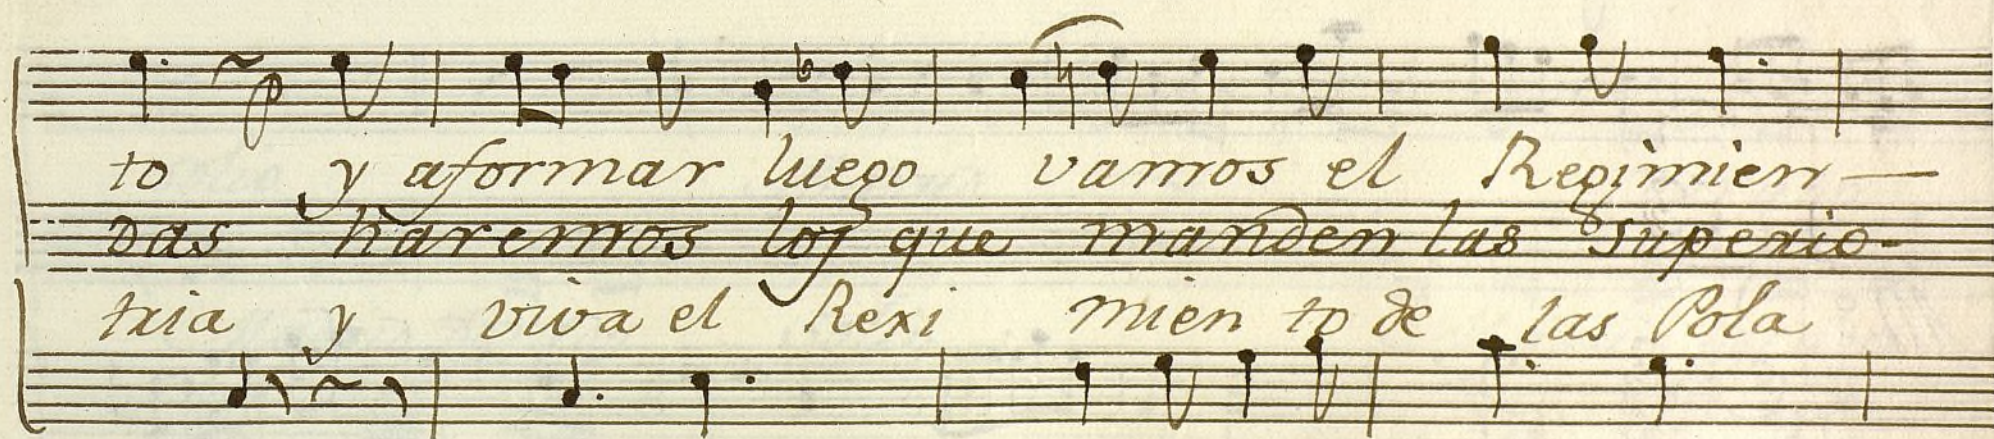 to y aformar luego vamos el Regimien—
das haremos loq que manden las superio-
tria y viva el Rexi mien to de las Pola